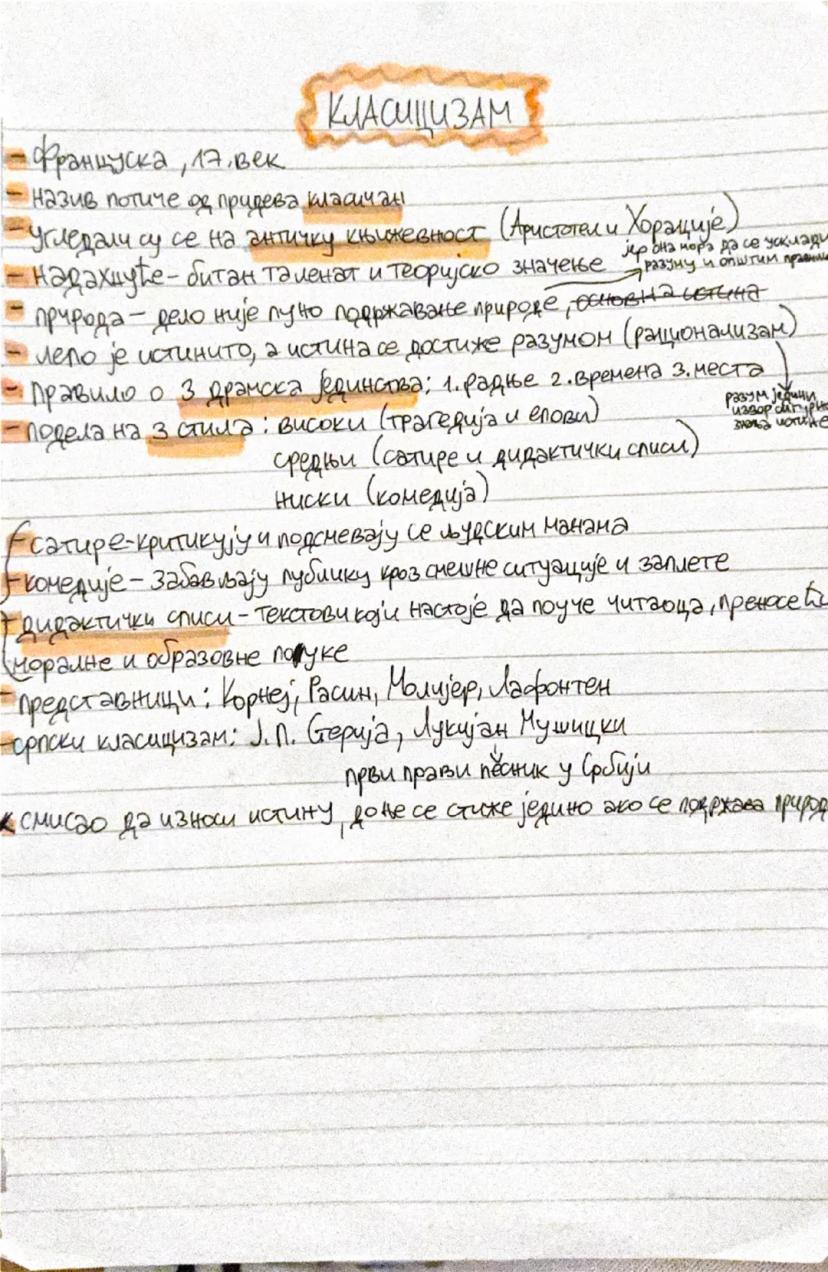 КЛАСИЦИЗАМ
- Француска, 17. век
- назив потиче од придева класичан
- угледали су се на античку књижевност (Аристотел и Хорације)
- надахнуће - битан таленат и теоријско значење
јер она мора да се усклади
разуму и општим
- природа - дело није пуно подржавање природе, основна истина
- лепо је истинито, а истина се достиже разумом (рационализам)
- правило о 3 драмска јединства: 1. радње 2. времена 3. места
разум једини
извор
истине
- подела на 3 стила: високи (трагедија и епови)
средњи (сатире и дидактички списи)
ниски (комедија)
- сатире - критикују и подсмевају се људским манама
- комедије - забављају публику кроз смешне ситуације и заплете
- дидактички списи - текстови који настоје да поуче читаоца, преносећи
моралне и образовне поруке
- представници: Корнеј, Расин, Молијер, Лафонтен
- српски класицизам: Ј. П. Стерија, Лукијан Мушицки
први прави песник у Србији
смисао да износи истину, до ње се стиже једино ако се подржава природ